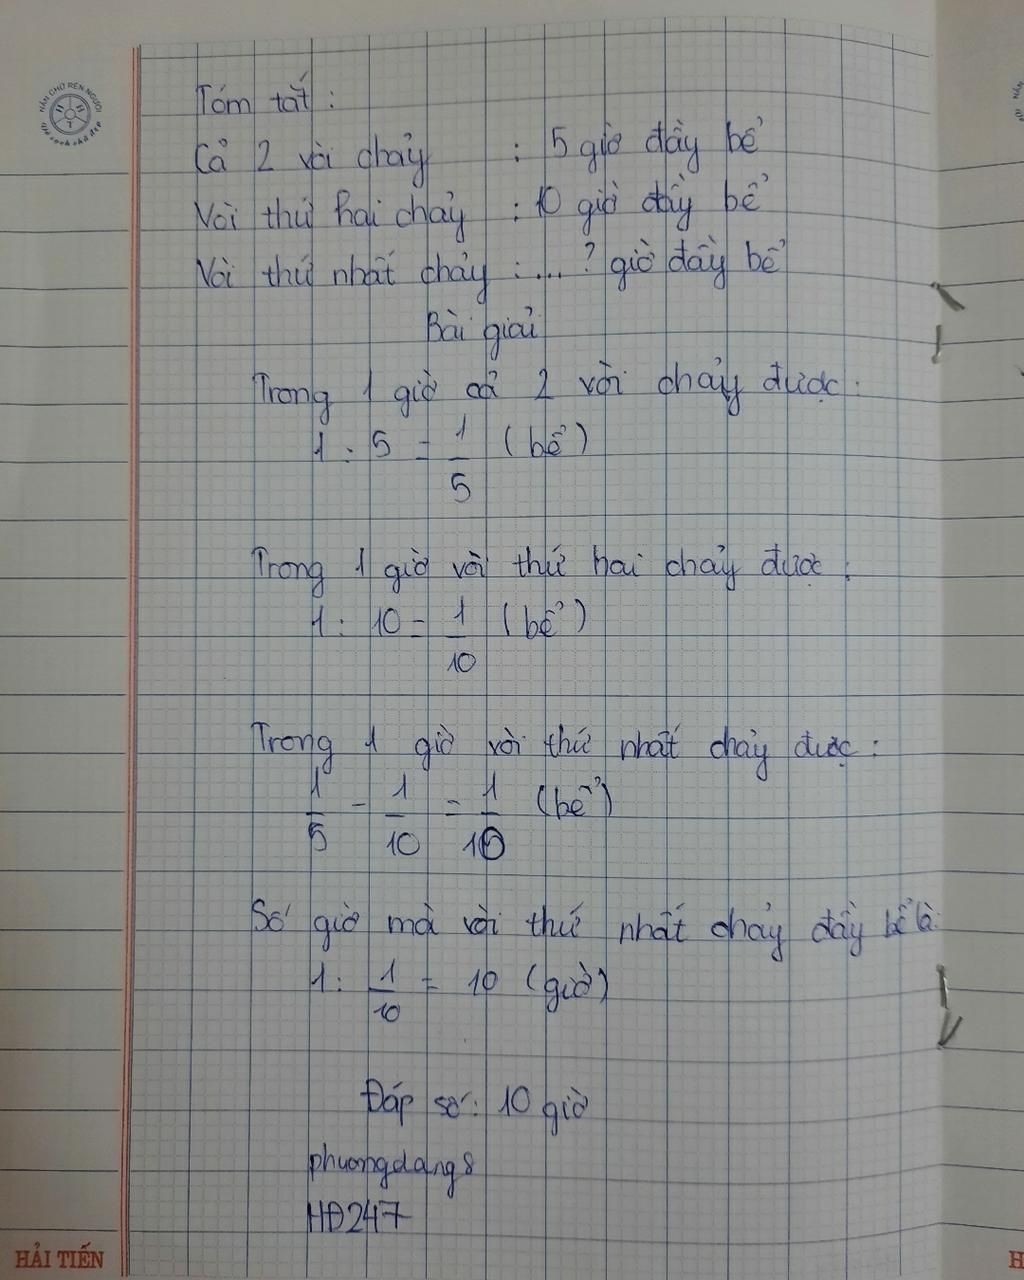 NẮN CHỮ RÈN NGƯỜI
Vở sạch chữ đẹp
Tóm tắt :
Cả 2 vòi chảy : 5 giờ đầy bể
Vòi thứ hai chảy : 10 giờ đầy bể
Vòi thứ nhất chảy : ... ? giờ đầy bể
Bài giải
Trong 1 giờ cả 2 vòi chảy được :
1 : 5 = 1/5 (bể)
Trong 1 giờ vòi thứ hai chảy được :
1 : 10 = 1/10 (bể)
Trong 1 giờ vòi thứ nhất chảy được :
1/5 - 1/10 = 1/10 (bể)
Số giờ mà vòi thứ nhất chảy đầy bể là:
1 : 1/10 = 10 (giờ)
Đáp số : 10 giờ
phuongdang8
HĐ247
HẢI TIẾN